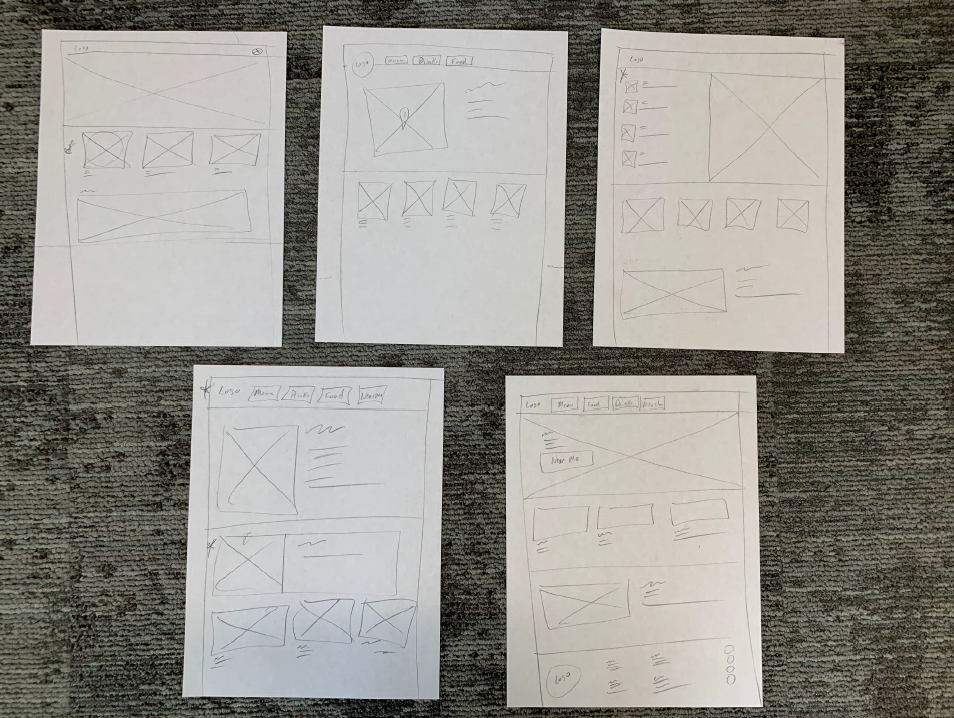 Logo
Logo Menu Drinks Food
Logo
Logo Menu Drinks Food Nearby
Logo Menu Food Drinks
Near Me
Logo